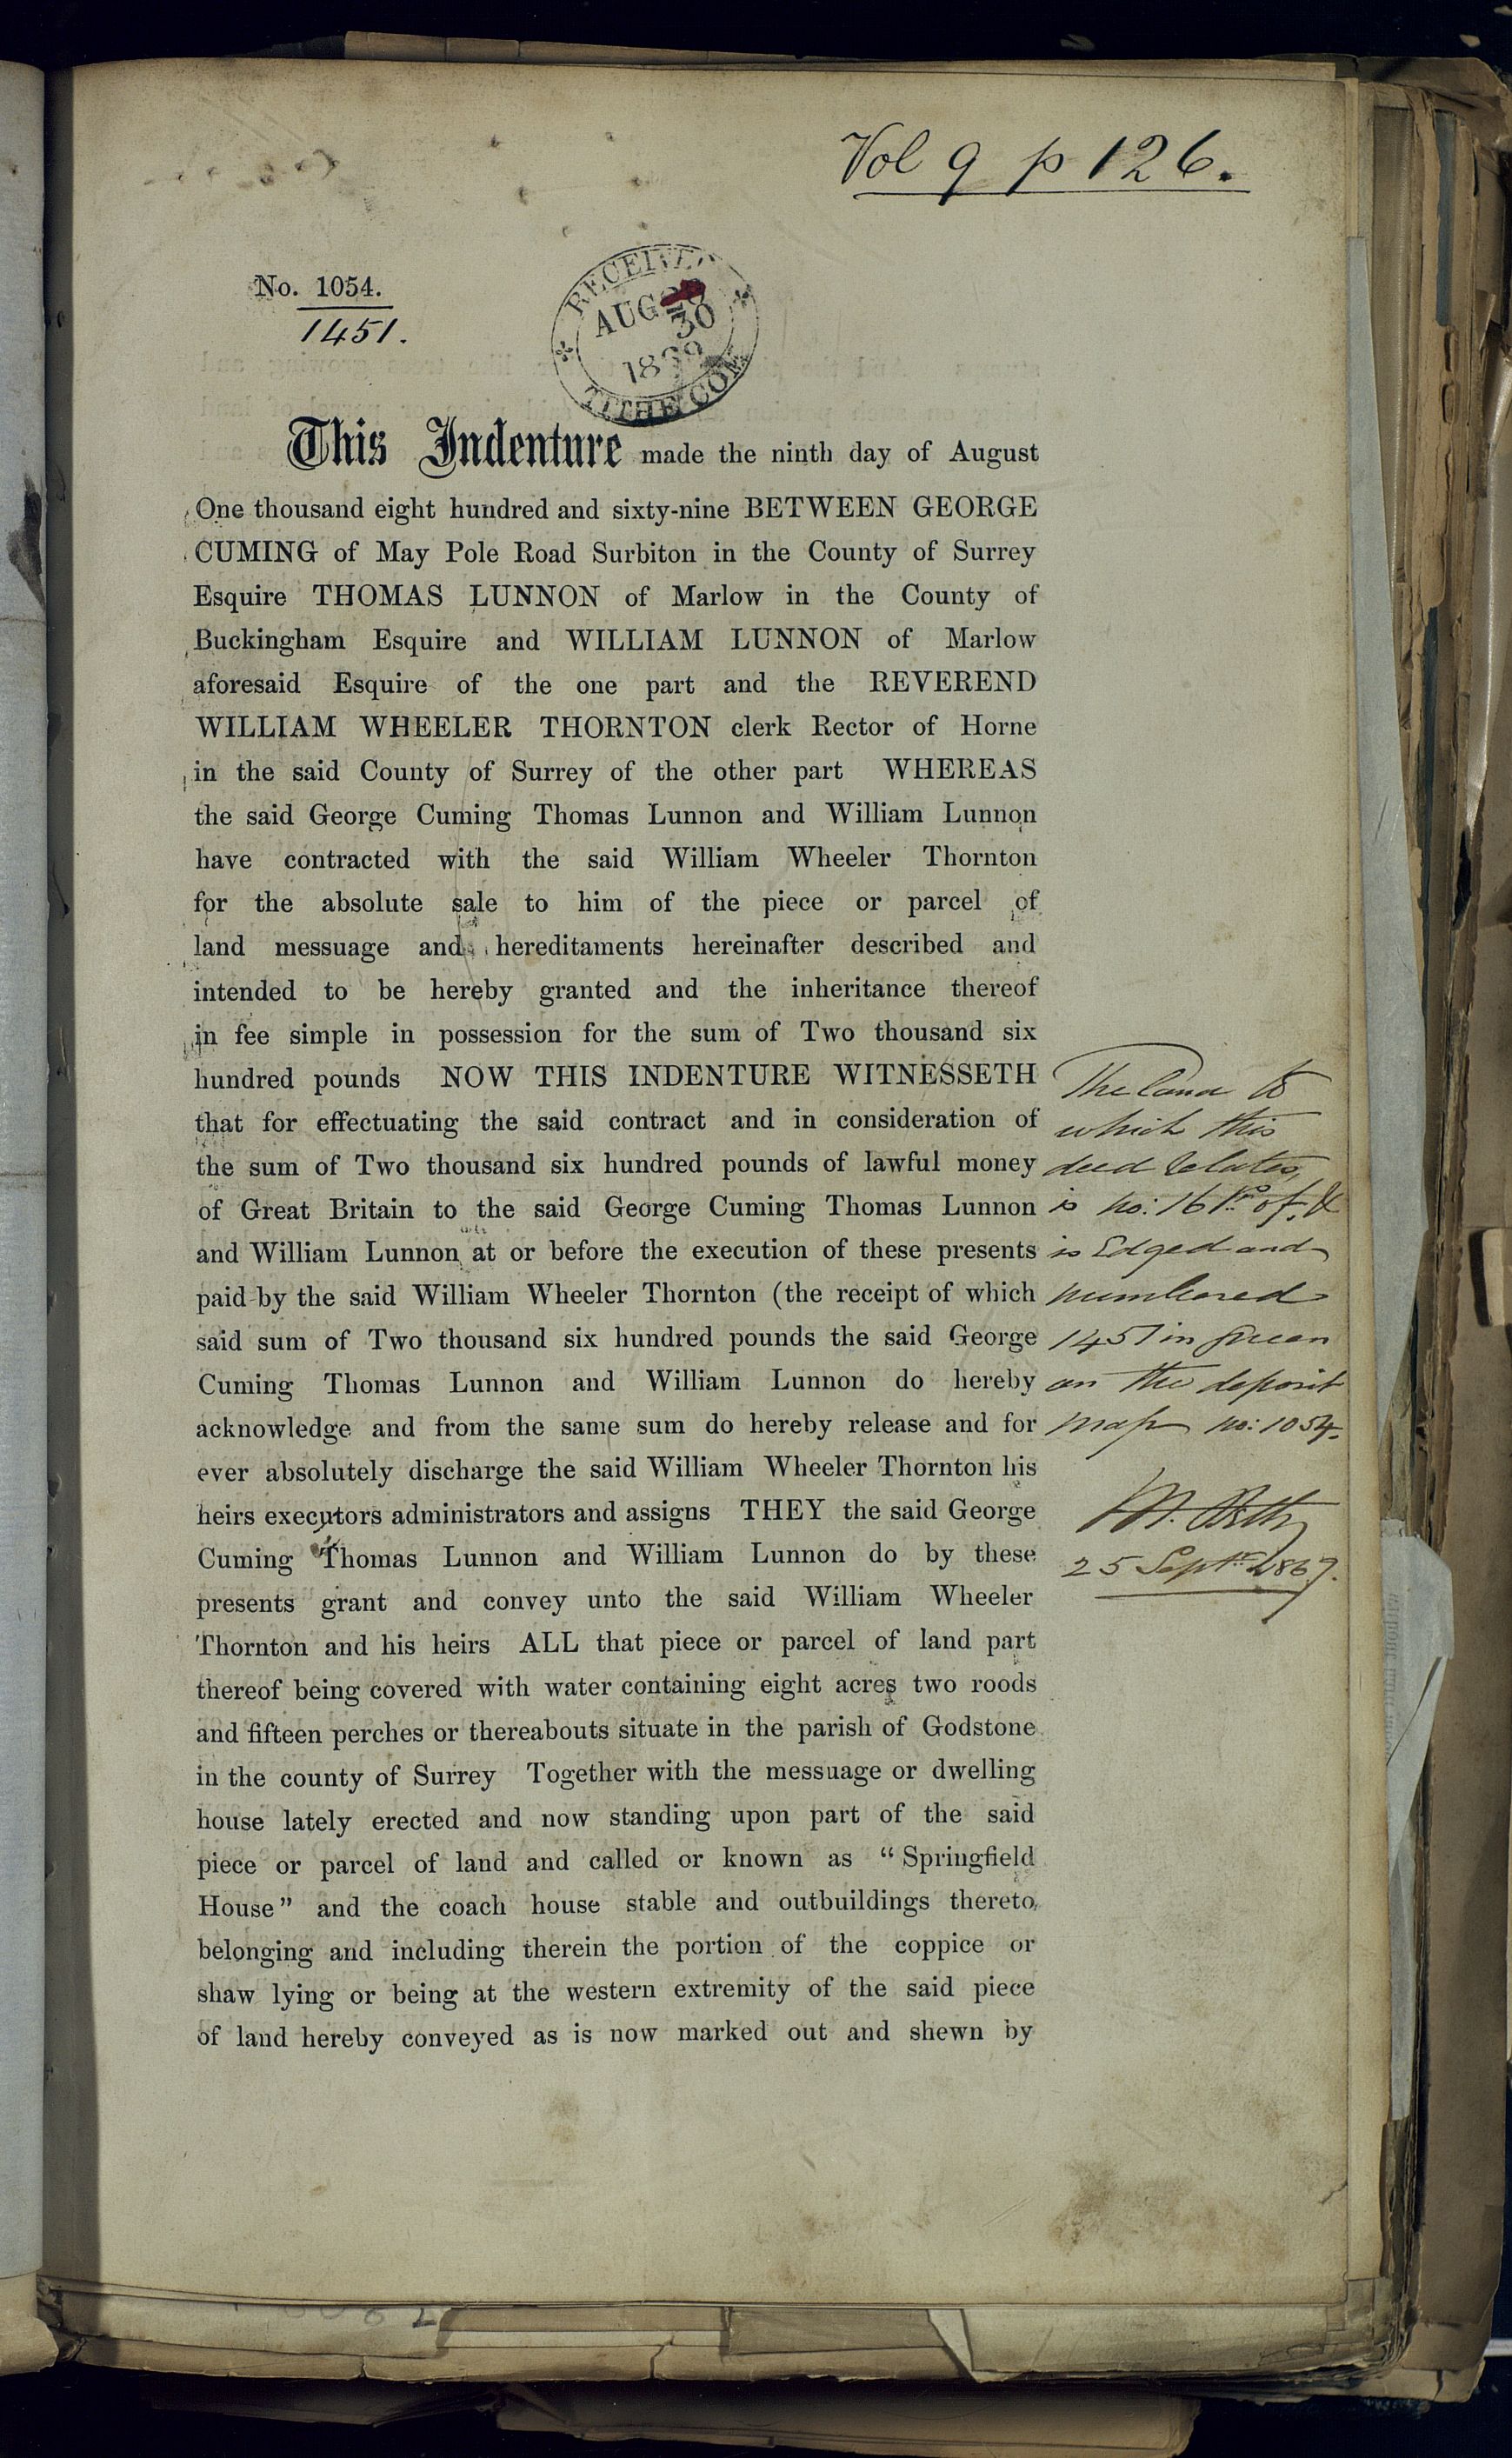 Vol 9 p 126.
No. 1054.
1451.
RECEIVED
AUG
30
1869
TITHE COM
This Indenture made the ninth day of August
One thousand eight hundred and sixty-nine BETWEEN GEORGE
CUMING of May Pole Road Surbiton in the County of Surrey
Esquire THOMAS LUNNON of Marlow in the County of
Buckingham Esquire and WILLIAM LUNNON of Marlow
aforesaid Esquire of the one part and the REVEREND
WILLIAM WHEELER THORNTON clerk Rector of Horne
in the said County of Surrey of the other part WHEREAS
the said George Cuming Thomas Lunnon and William Lunnon
have contracted with the said William Wheeler Thornton
for the absolute sale to him of the piece or parcel of
land messuage and hereditaments hereinafter described and
intended to be hereby granted and the inheritance thereof
in fee simple in possession for the sum of Two thousand six
hundred pounds NOW THIS INDENTURE WITNESSETH
that for effectuating the said contract and in consideration of
the sum of Two thousand six hundred pounds of lawful money
of Great Britain to the said George Cuming Thomas Lunnon
and William Lunnon at or before the execution of these presents
paid by the said William Wheeler Thornton (the receipt of which
said sum of Two thousand six hundred pounds the said George
Cuming Thomas Lunnon and William Lunnon do hereby
acknowledge and from the same sum do hereby release and for
ever absolutely discharge the said William Wheeler Thornton his
heirs executors administrators and assigns THEY the said George
Cuming Thomas Lunnon and William Lunnon do by these
presents grant and convey unto the said William Wheeler
Thornton and his heirs ALL that piece or parcel of land part
thereof being covered with water containing eight acres two roods
and fifteen perches or thereabouts situate in the parish of Godstone
in the county of Surrey Together with the messuage or dwelling
house lately erected and now standing upon part of the said
piece or parcel of land and called or known as "Springfield
House" and the coach house stable and outbuildings thereto
belonging and including therein the portion of the coppice or
shaw lying or being at the western extremity of the said piece
of land hereby conveyed as is now marked out and shewn by
The land to
which this
deed relates,
is no: 16 pt of, &
is Edged and
numbered
1451 in green
on the deposit
map no: 1054.
25 Septr 1869.